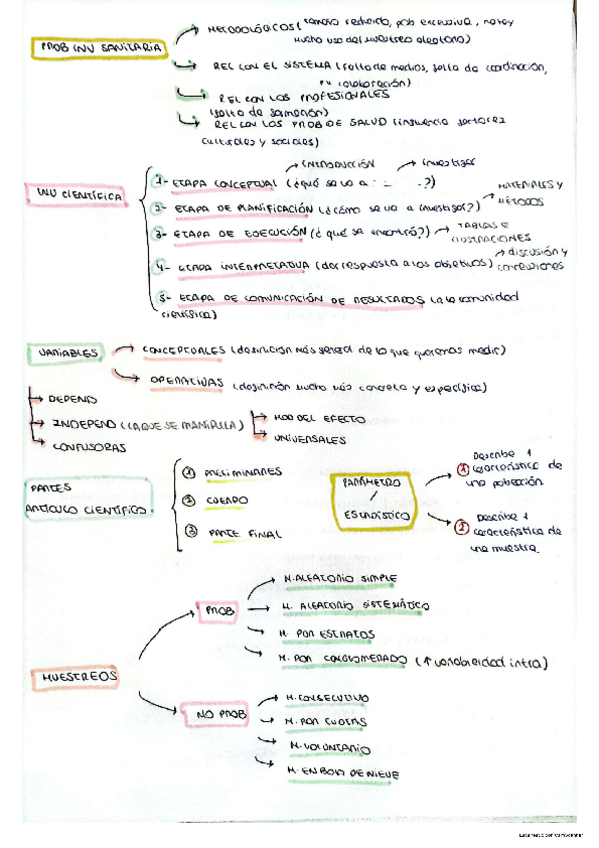 METODOLÓGICOS (tamaño reducido, pob excesiva, no hay
mucho uso del muestreo aleatorio)
PROB INV SANITARIA
REL CON EL SISTEMA (falta de medios, falta de coordinación,
colaboración)
REL CON LOS PROFESIONALES
(falta de formación)
REL CON LOS PROB DE SALUD (influencia factores
culturales y sociales)
INTRODUCCIÓN investigar
1- ETAPA CONCEPTUAL (¿qué se va a ?)
INV CIENTÍFICA
2- ETAPA DE PLANIFICACIÓN (¿cómo se va a investigar?) MATERIALES Y
MÉTODOS
3- ETAPA DE EJECUCIÓN (¿qué se encontró?) TABLAS E
ILUSTRACIONES
4- ETAPA INTERPRETATIVA (dar respuesta a los objetivos) discusión y
conclusiones
5- ETAPA DE COMUNICACIÓN DE RESULTADOS (a la comunidad
científica)
VARIABLES
CONCEPTUALES (definición más general de lo que queremos medir)
OPERATIVAS (definición mucho más concreta y específica)
DEPEND
INDEPEND (LA QUE SE MANIPULA)
MOD DEL EFECTO
CONFUSORAS
UNIVERSALES
PARTES
ARTÍCULO CIENTÍFICO
1 PRELIMINARES
2 CUERPO
3 PARTE FINAL
PARÁMETRO
/
ESTADÍSTICO
1 Describe 1
característica de
una población
2 Describe 1
característica de
una muestra.
MUESTREOS
PROB
M. ALEATORIO SIMPLE
M. ALEATORIO SISTEMÁTICO
M. POR ESTRATOS
M. POR CONGLOMERADO (↑ variabilidad intra)
NO PROB
M. CONSECUTIVO
M. POR CUOTAS
M. VOLUNTARIO
M. EN BOLA DE NIEVE